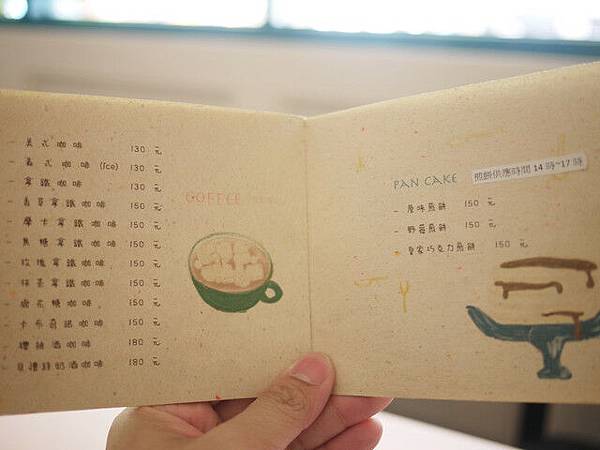 - 美式咖啡 130 元
- 義式咖啡 (Ice) 130 元
- 拿鐵咖啡 130 元
- 香草拿鐵咖啡 150 元
- 摩卡拿鐵咖啡 150 元
- 焦糖拿鐵咖啡 150 元
- 玫瑰拿鐵咖啡 150 元
- 抹茶拿鐵咖啡 150 元
- 楓花糖咖啡 150 元
- 卡布奇諾咖啡 150 元
- 櫻桃酒咖啡 180 元
- 貝禮詩奶酒咖啡 180 元
COFFEE
PAN CAKE 煎餅供應時間 14 時~17 時
- 原味煎餅 150 元
- 野莓煎餅 150 元
- 皇家巧克力煎餅 150 元